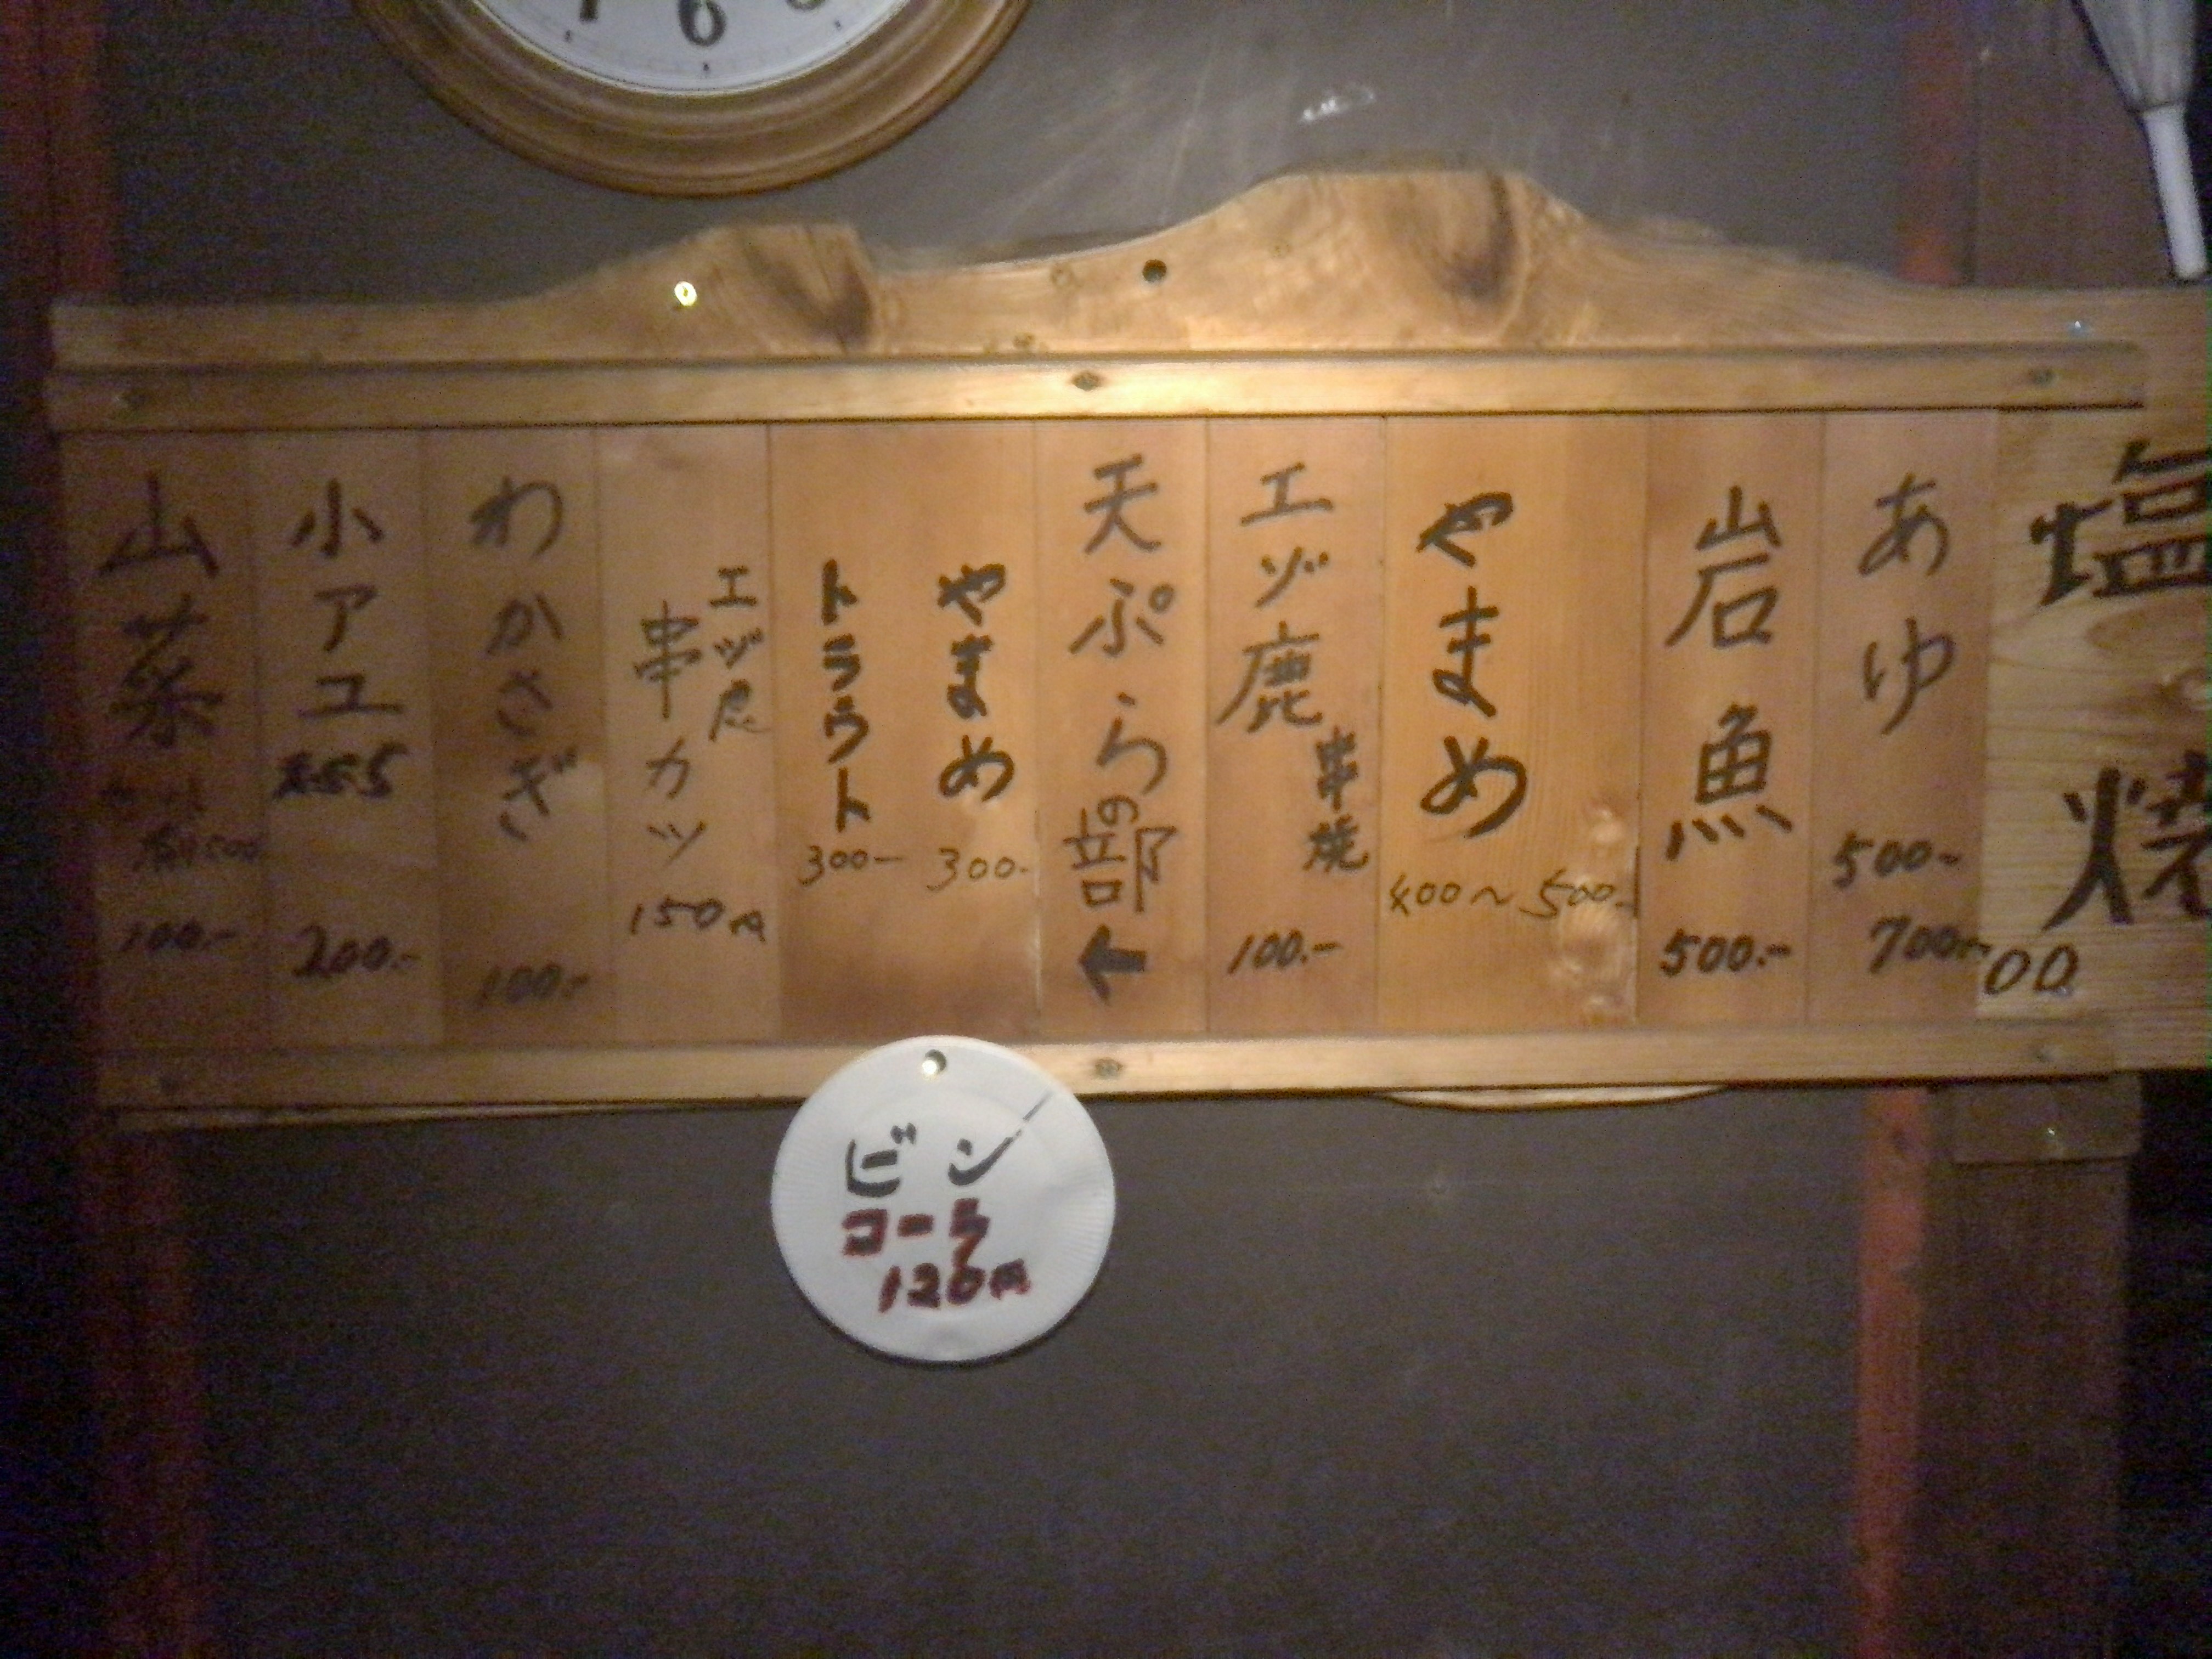 塩焼
あゆ
500-
700-
00
岩魚
500.-
やまめ
400~500-
エゾ鹿
串焼
100.-
天ぷらの部
←
やまめ
300-
トラウト
300-
エゾ鹿
串カツ
150円
わかさぎ
100.-
小アユ
200.-
山菜
100.-
ビン
コーラ
120円
6